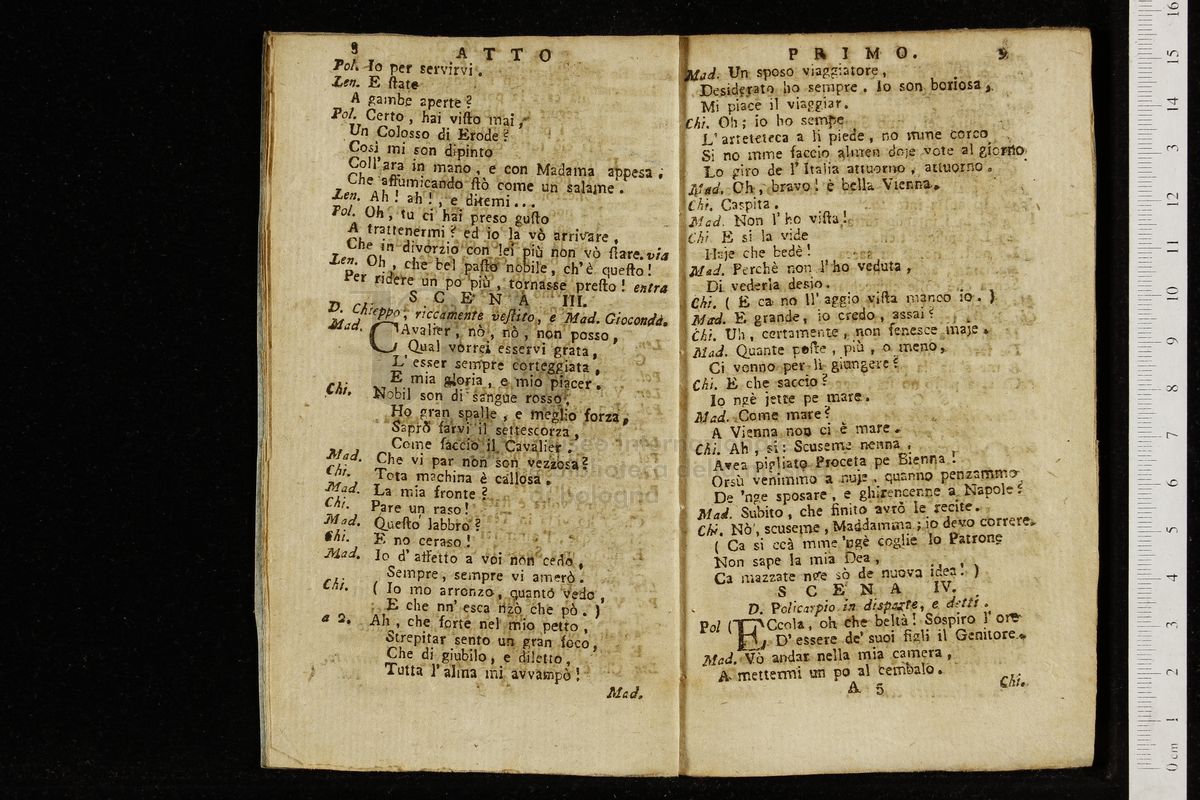 8
ATTO
Pol. Io per servirvi.
Len. E ſtate
A gambe aperte?
Pol. Certo, hai viſto mai,
Un Coloſſo di Erode?
Così mi son dipinto
Coll'ara in mano, e con Madama appesa.
Che affumicando ſtò come un salame.
Len. Ah! ah!, e ditemi...
Pol. Oh, tu ci hai preso guſto
A trattenermi? ed io la vò arrivare,
Che in divorzio con lei più non vò ſtare. via
Len. Oh, che bel paſto nobile, ch'è queſto!
Per ridere un po più, tornasse preſto! entra
SCENA III.
D. Chieppo, riccamente veſtito, e Mad. Gioconda.
Mad. CAvalier, nò, nò, non posso,
Qual vorrei esservi grata,
L'esser sempre corteggiata,
E mia gloria, e mio piacer.
Chi. Nobil son di sangue rosso,
Ho gran spalle, e meglio forza,
Saprò farvi il settescorza,
Come faccio il Cavalier.
Mad. Che vi par non son vezzosa?
Chi. Tota machina è callosa.
Mad. La mia fronte?
Chi. Pare un raso!
Mad. Queſto labbro?
Chi. E no ceraso!
Mad. Io d'affetto a voi non cedo,
Sempre, sempre vi amerò.
Chi. ( Io mo arronzo, quanto vedo,
E che nn'esca nzò che pò. )
a 2. Ah, che forte nel mio petto,
Strepitar sento un gran foco,
Che di giubilo, e diletto,
Tutta l'alma mi avvampò!
Mad.
PRIMO.
9
Mad. Un sposo viaggiatore,
Desiderato ho sempre. Io son boriosa,
Mi piace il viaggiar.
Chi. Oh; io ho sempe
L'arteteteca a li piede, no mme corco
Si no mme faccio almen doje vote al giorno
Lo giro de l'Italia attuorno, attuorno.
Mad. Oh, bravo! è bella Vienna.
Chi. Caspita.
Mad. Non l'ho viſta!
Chi. E si la vide
Haje che bedè!
Mad. Perchè non l'ho veduta,
Di vederla desio.
Chi. ( E ca no ll'aggio viſta manco io. )
Mad. E grande, io credo, assai?
Chi. Uh, certamente, non fenesce maje.
Mad. Quante poſte, più, o meno,
Ci vonno per li giungere?
Chi. E che saccio?
Io ngè jette pe mare.
Mad. Come mare?
A Vienna non ci è mare.
Chi. Ah, si: Scuseme nenna,
Avea pigliato Proceta pe Bienna!
Orsù venimmo a nuje, quanno penzammo
De 'nge sposare, e ghirencenne a Napole?
Mad. Subito, che finito avrò le recite.
Chi. Nò, scuseme, Maddamma; io devo correre.
( Ca si ccà mme 'ngè coglie lo Patrone
Non sape la mia Dea,
Ca mazzate nge sò de nuova idea! )
SCENA IV.
D. Policarpio in disparte, e detti.
Pol ( ECcola, oh che beltà! Sospiro l'ore
D'essere de' suoi figli il Genitore.
Mad. Vò andar nella mia camera,
A mettermi un po al cembalo.
A 5
Chi.